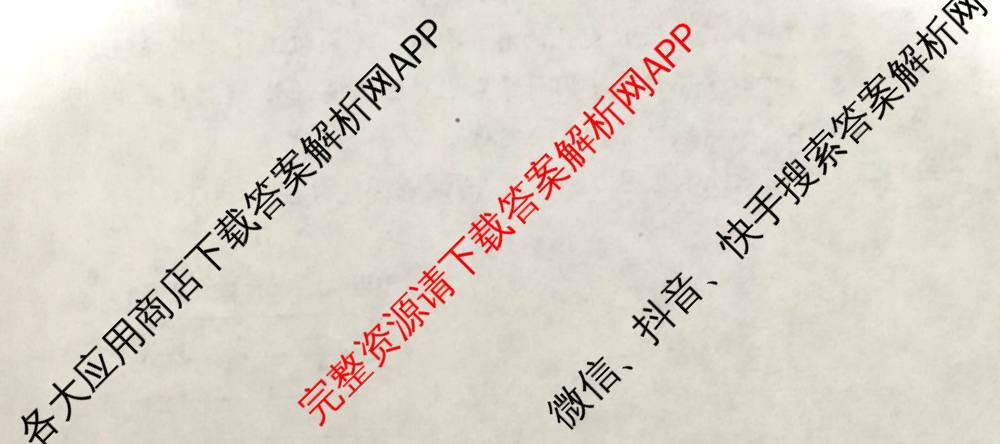 各大应用商店下载答案解析网APP
完整资源请下载答案解析网APP
微信、抖音、快手搜索答案解析网